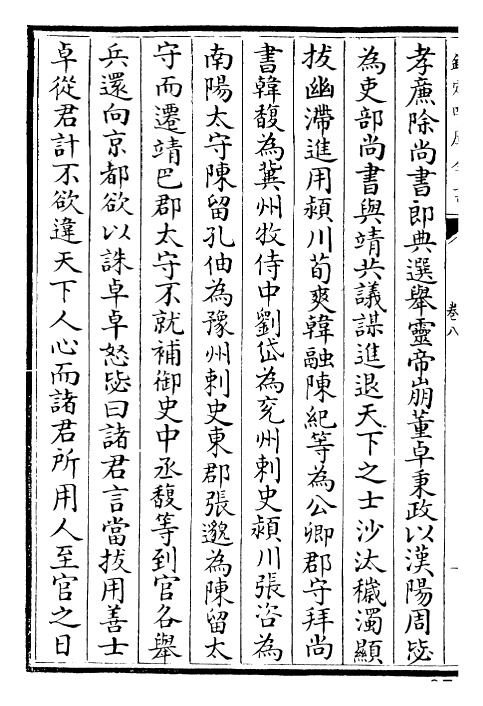 孝廉除尚書郎典選舉靈帝崩董卓秉政以漢陽周毖
為吏部尚書與靖共議謀進退天下之士沙汰穢濁顯
拔幽滯進用潁川荀爽韓融陳紀等為公卿郡守拜尚
書韓馥為冀州牧侍中劉岱為兖州刺史潁川張咨為
南陽太守陳留孔伷為豫州刺史東郡張邈為陳留太
守而遷靖巴郡太守不就補御史中丞馥等到官各舉
兵還向京都欲以誅卓卓怒毖曰諸君言當拔用善士
卓從君計不欲違天下人心而諸君所用人至官之日
卷八